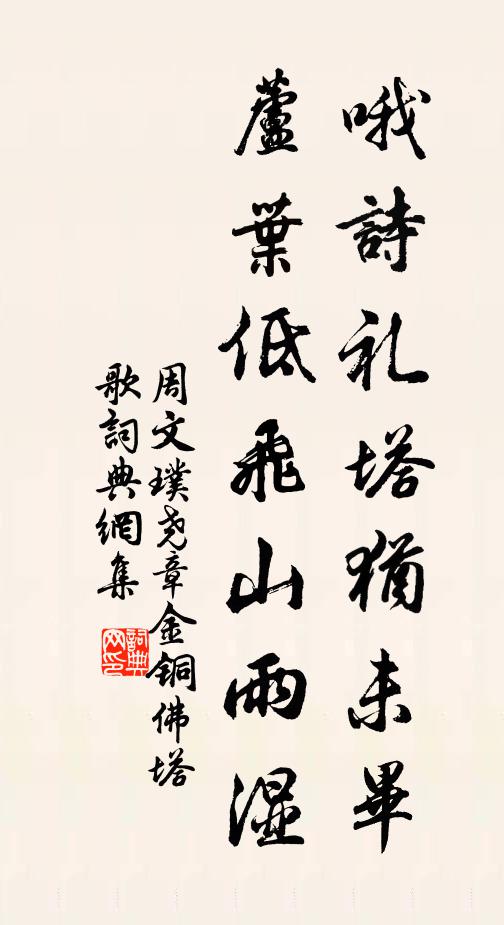 哦詩礼塔猶未畢
蘆葉低飛山雨湿
周文璞尧章金銅佛塔
歌詞典網集
詞典
网印